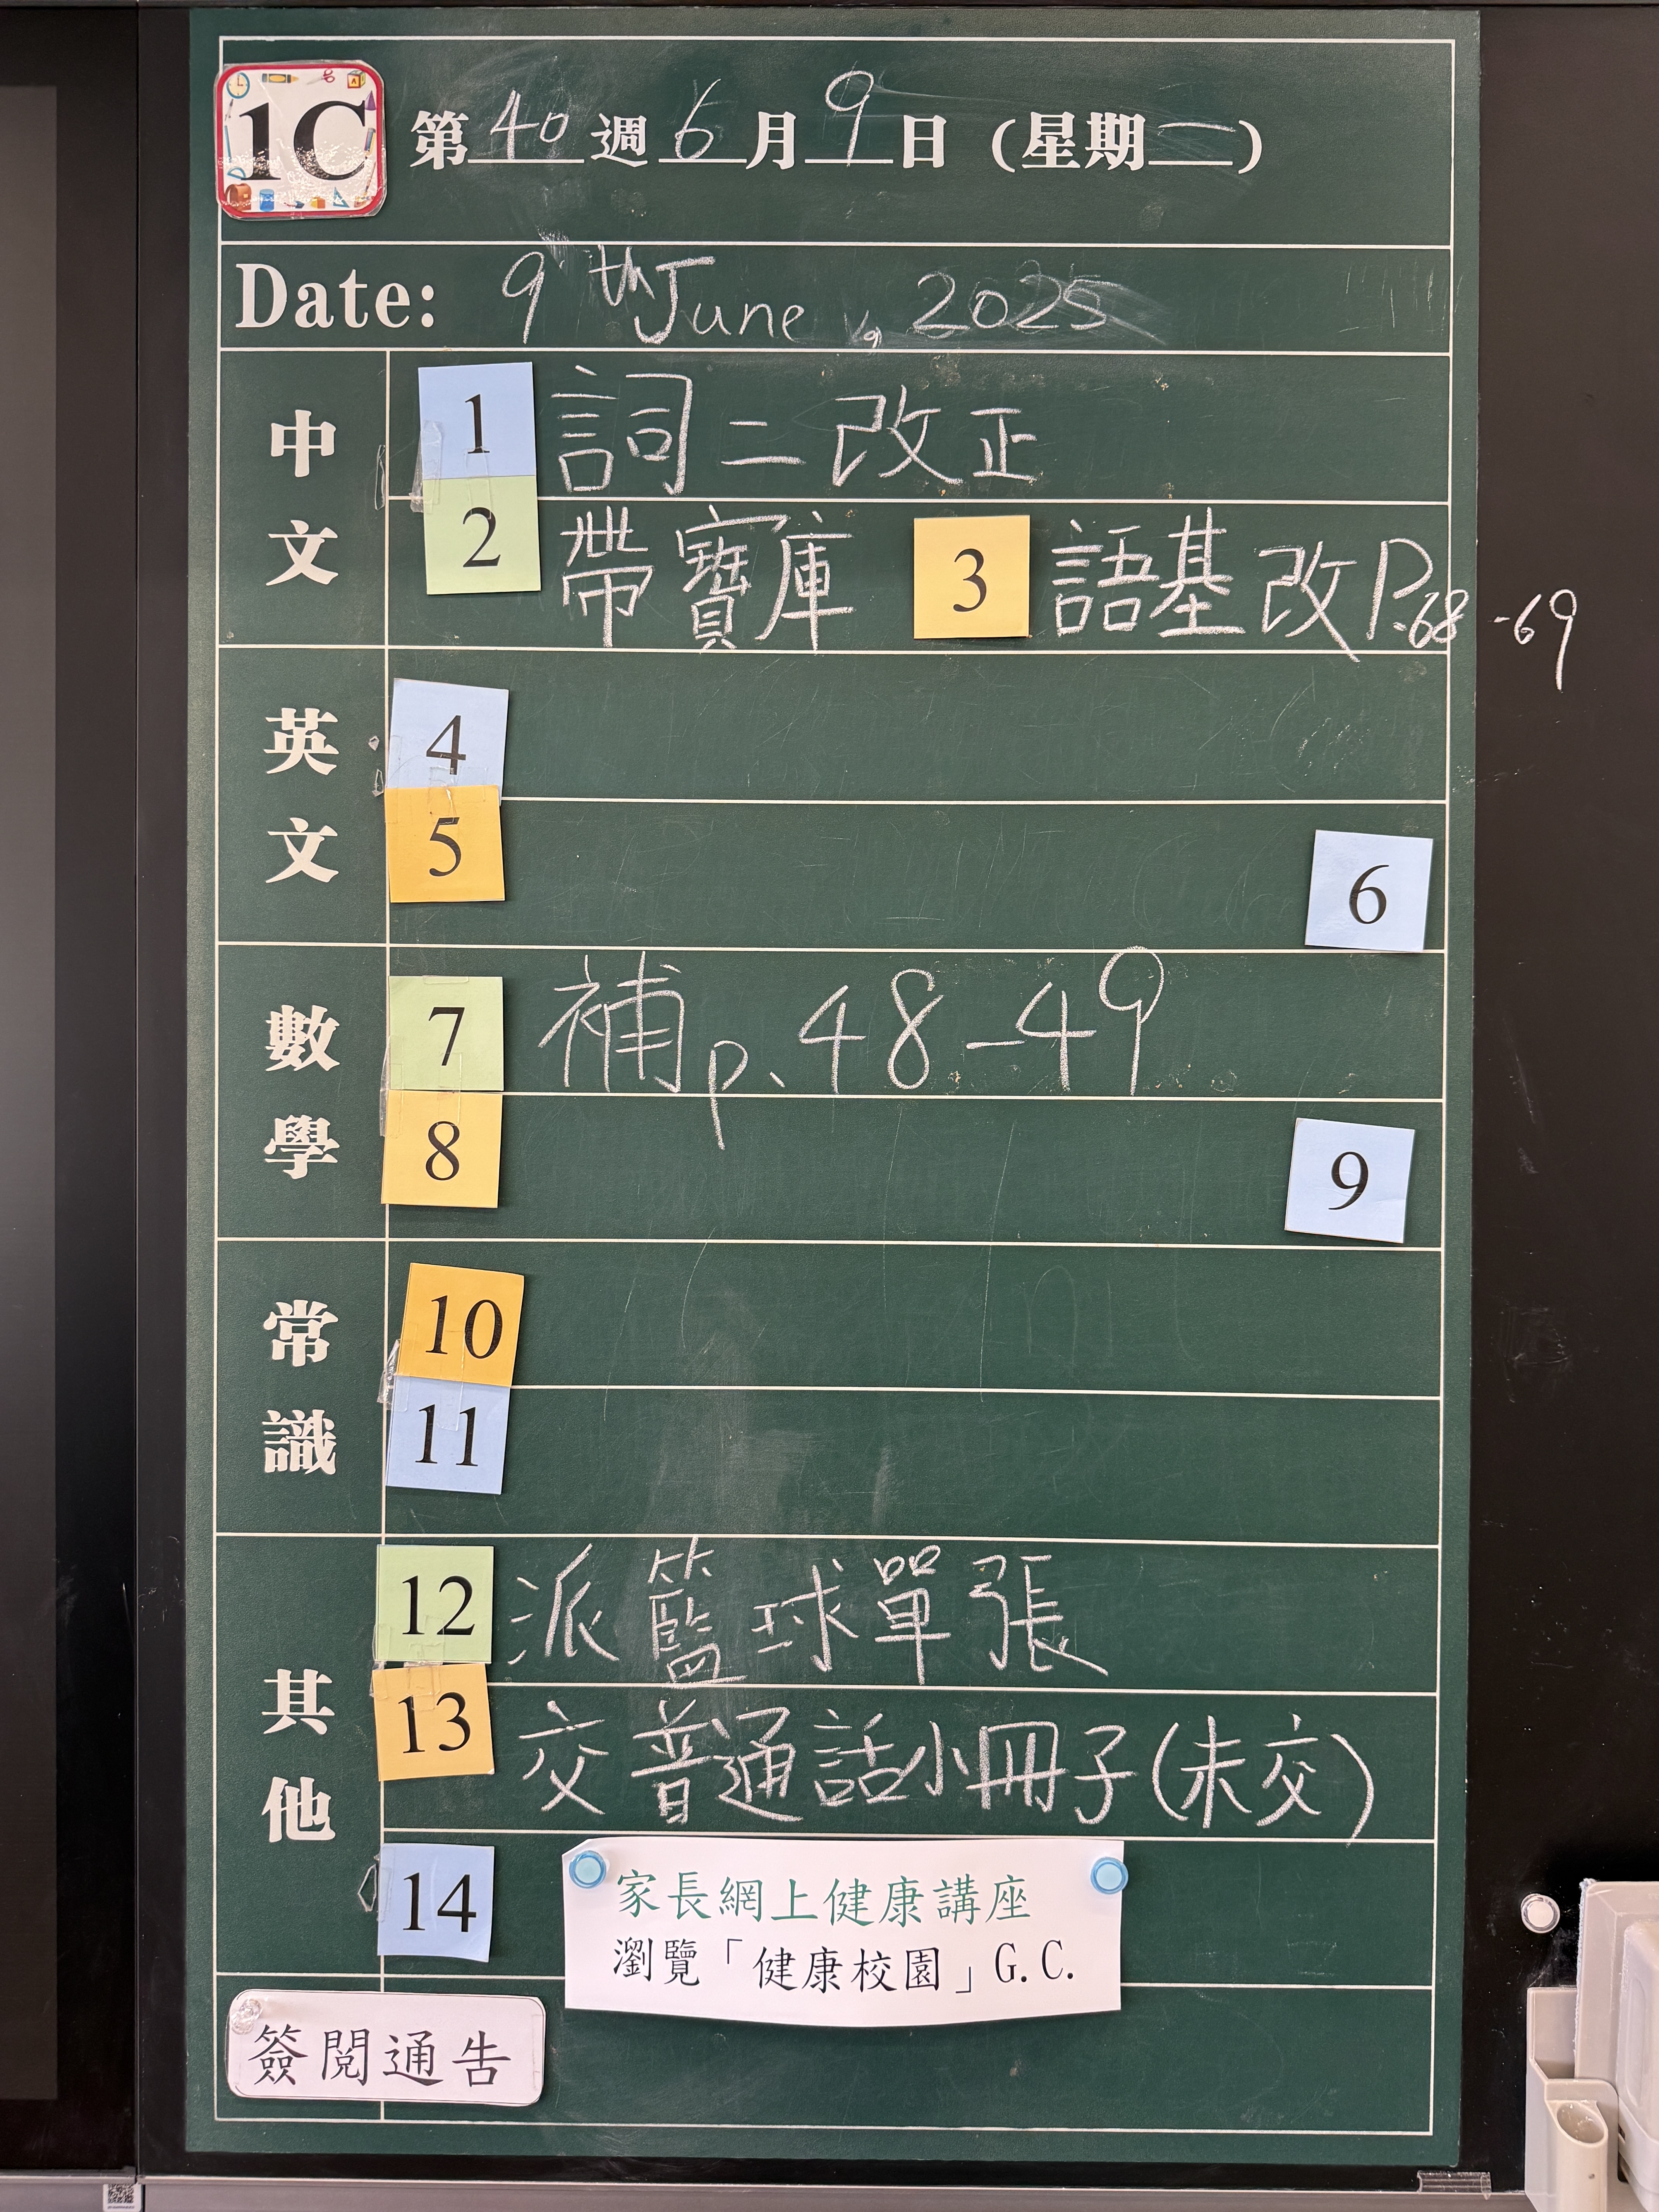 1C 第40週6月9日（星期一）
Date: 9th June, 2025
中文
1 詞二改正
2 帶寶庫 3 語基改P.68-69
英文
4
5
6
數學
7 補p.48-49
8
9
常識
10
11
其他
12 派籃球單張
13 交普通話小冊子(未交)
14 家長網上健康講座
瀏覽「健康校園」G.C.
簽閱通告